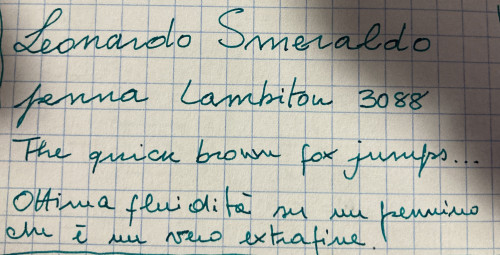 Leonardo Smeraldo
penna Lambitou 3088
The quick brown fox jumps...
Ottima fluidità su un pennino
che è un vero extrafine.